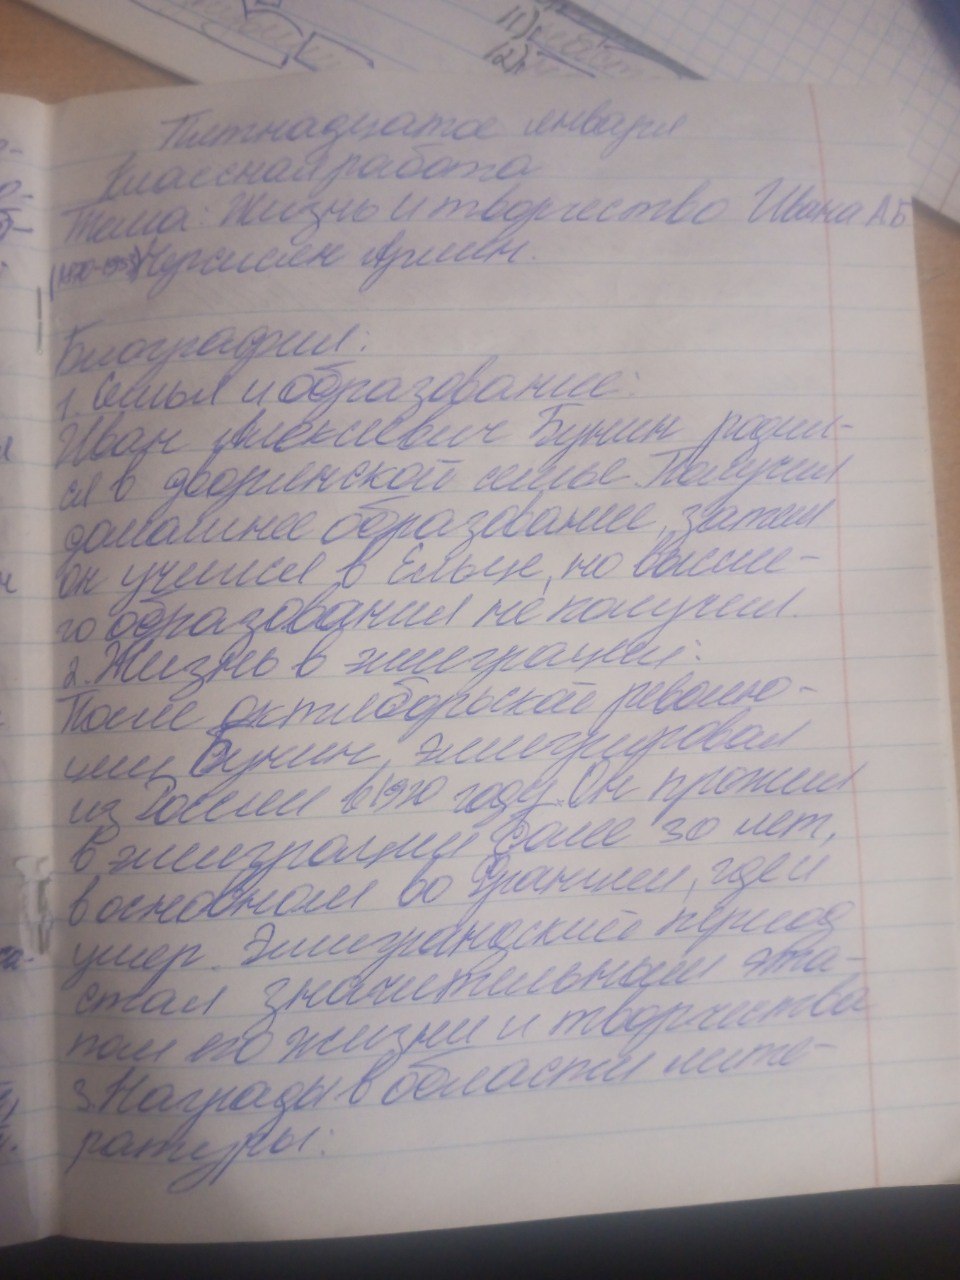 11)
12)
Пятнадцатое января
Классная работа
Тема: Жизнь и творчество Ивана А.Б
(1870-1953) Черкесян Армен.
Биография:
1. Семья и образование:
Иван Алексеевич Бунин родил-
ся в дворянской семье. Получил
домашнее образование, затем
он учился в Ельце, но высше-
го образования не получил.
2. Жизнь в эмиграции:
После октябрьской револю-
ции Бунин, эмигрировал
из России в 1920 году. Он прожил
в эмиграции более 30 лет,
в основном во Франции, где и
умер. Эмигрантский период
стал значительным эта-
пом его жизни и творчества
3. Награды в области лите-
ратуры: